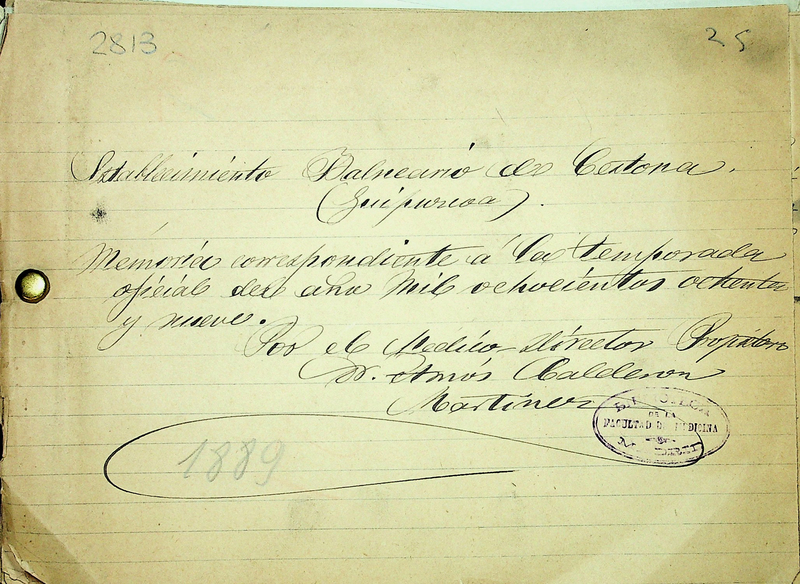 2813
25
Establecimiento Balneario de Cestona.
(Guipuzcoa).
Memoria correspondiente á la temporada
oficial del año Mil ochocientos ochenta
y nueve.
Por el Medico Director Propietario
Dr. Amós Calderon
Martinez
BIBLIOTECA
DE LA
FACULTAD DE MEDICINA
MADRID
1889